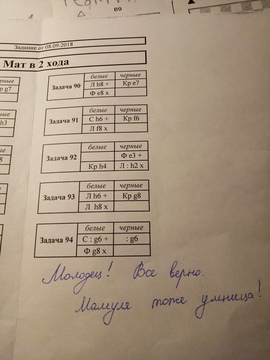 Задание от 08.09.2018
Мат в 2 хода
черные
р g7
h3
Задача 90
белые черные
Л h8 + Кр e7
Ф e8 x
Задача 91
белые черные
С h6 + Кр f6
Л f8 x
Задача 92
белые черные
Ф e3 +
Кр h4 Л : h2 x
Задача 93
белые черные
Л h6 + Кр g8
Л h8 x
Задача 94
белые черные
С : g6 + : g6
Ф g8 x
Молодец! Все верно.
Мамуля тоже умница!